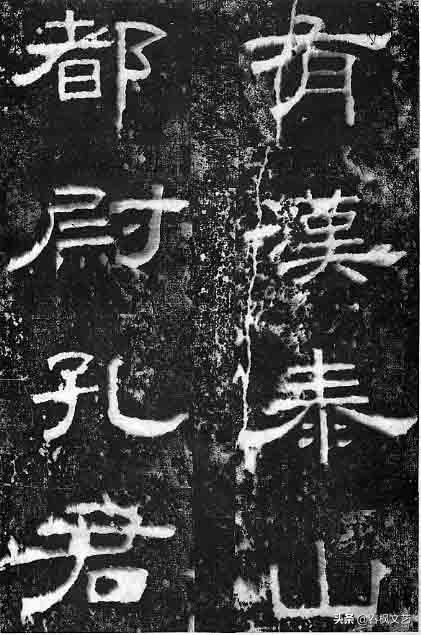 有漢泰山
都尉孔君
头条@春枫文艺